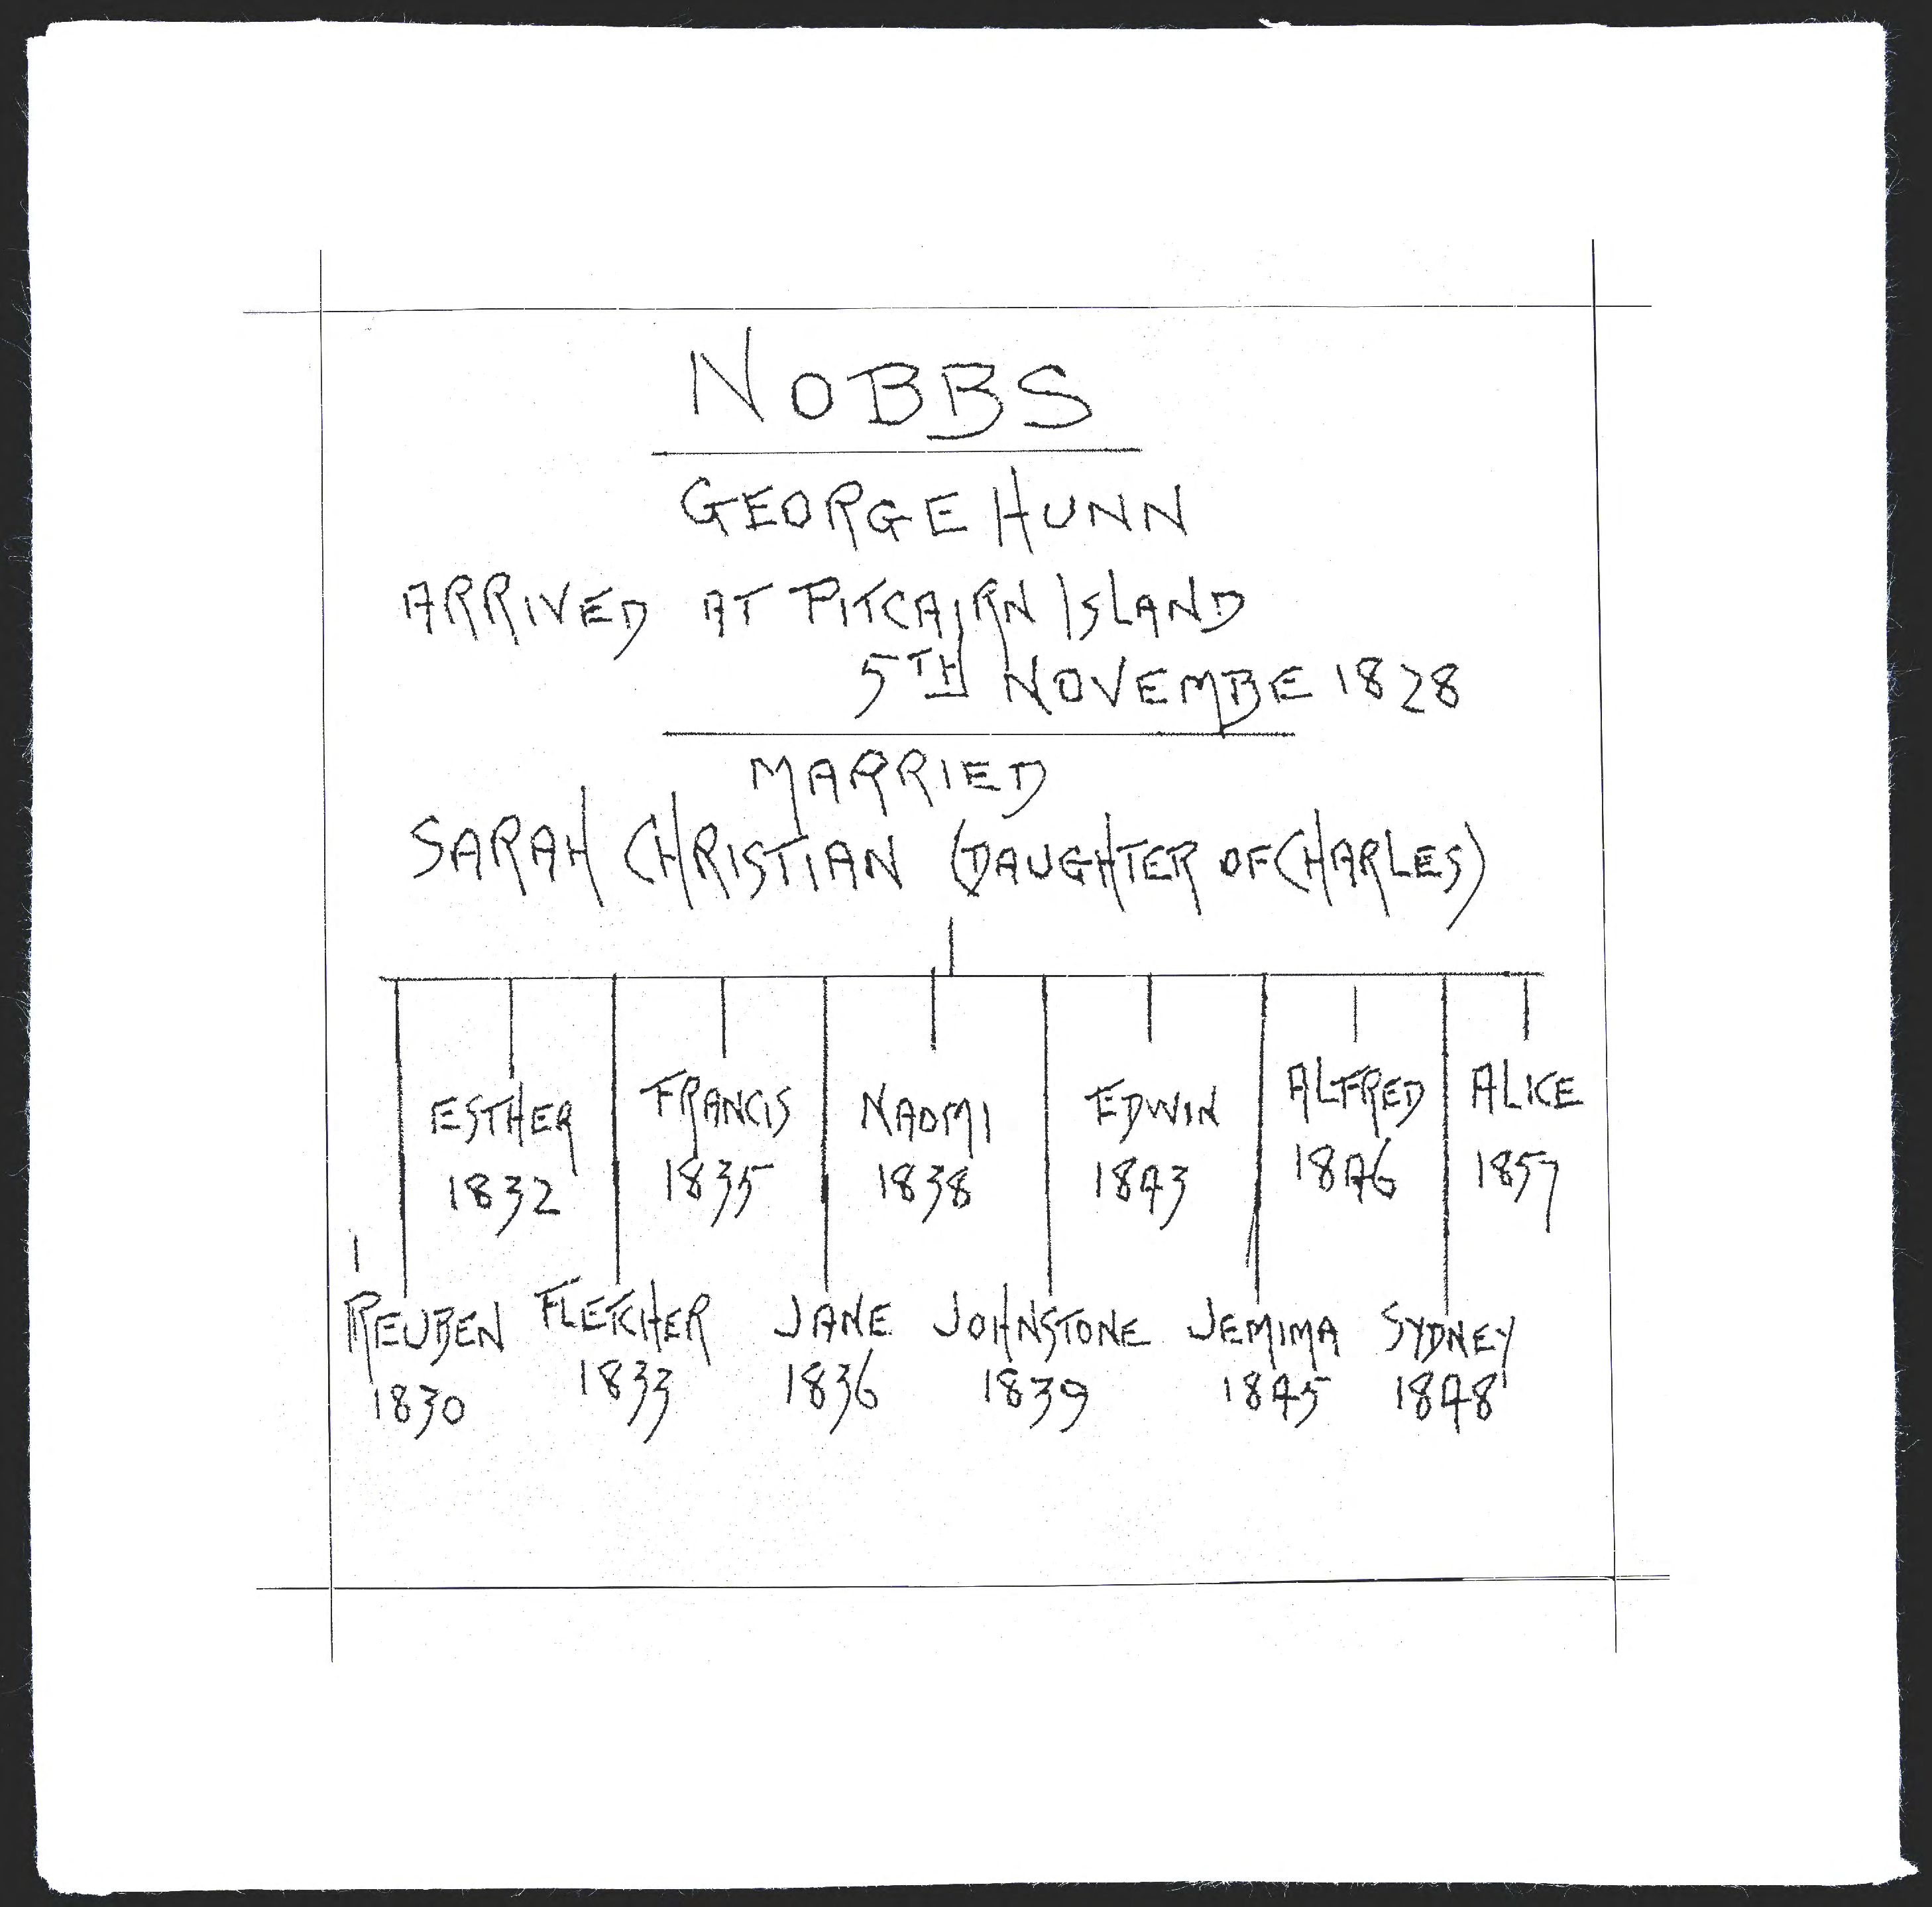 NOBBS
GEORGE HUNN
ARRIVED AT PITCAIRN ISLAND
5TH NOVEMBE 1828
MARRIED
SARAH CHRISTIAN (DAUGHTER OF CHARLES)
ESTHER FRANCIS NAOMI EDWIN ALFRED ALICE
1832 1835 1838 1843 1846 1857
REUBEN FLETCHER JANE JOHNSTONE JEMIMA SYDNEY
1830 1833 1836 1839 1845 1848